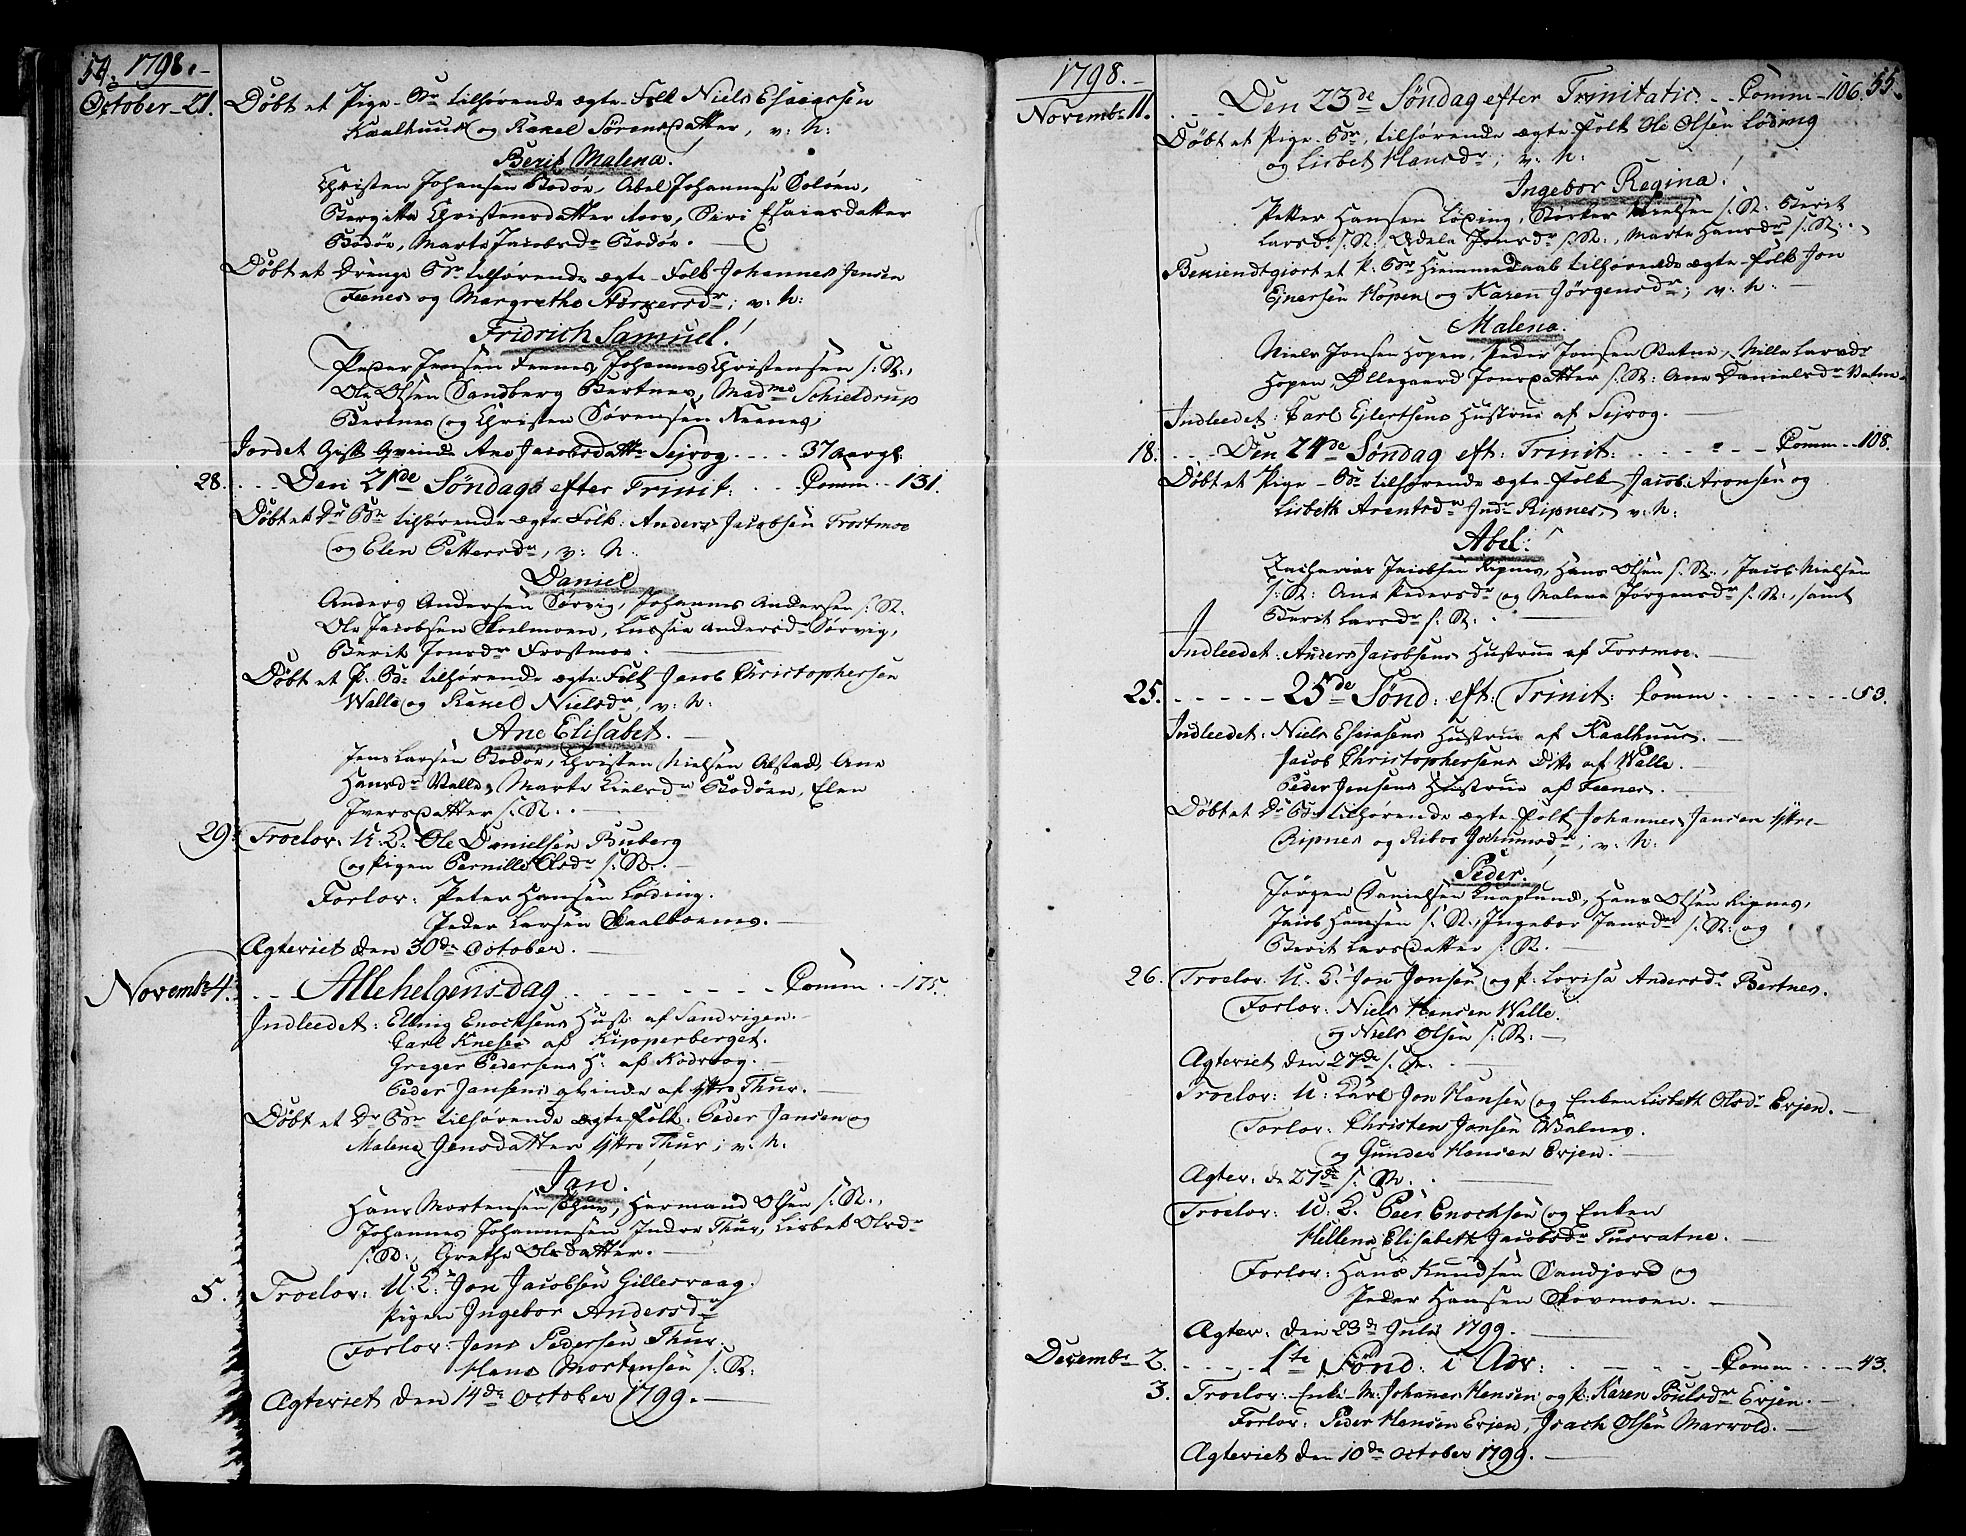 54. 1798.
October 21. Døbt et Pige-Br tilhørende ægte-Folk Niels Esaiassen
Kaalhuus og Rakel Sørensdatter, v: N:
Berit Malena.
Christen Johansen Bodøe, Abel Johannese Soløen,
Bergitte Christensdatter, Siri Esaiasdatter
Bodøe, Marte Jacobsdr Bodøe.
Døbt et Drenge Br tilhørende ægte-Folk Johannes Jensen
Feenes og Margrethe; v: N:
Fridrich Samuel!
Peder Jensen Feenes, Johannes Christensen s. St.,
Ole Olsen Sandberg Bertnes, Madme Schieldrup
Bertnes og Christen Sørensen Neenes,
Jordet Gift Qvinde Ane Jacobsdattr Seivog 37 aar gl.
28. Den 21de Søndags efter Trinit: Comm 131.
Døbt et Dr Br tilhørende ægte Folk: Anders Jacobsen Frostmoe
og Elen Pettersdr, v: N:
Daniel
Anders Andersen Sørvig, Johannes Andersen s. St.
Ole Jacobsen Skoelmoen, Lussia Andersdr Sørvig,
Berit Jonsdr Frostmoe.
Døbt et P: Br tilhørende ægte Folk Jacob Christophersen
Walle og Rakel Nielsdr, v: N:
Ane Elisabet.
Jens Larsen Bodøe, Christen Nielsen Alstad, Ane
Hansdr Valle, Marte Nielsdr Bodøen, Elen
Iversdatter s. St.
29. Troelov: U. K. Ole Danielsen Buberg
og Pigen Pernille Olsdr s. St.
Forlov: Peter Hansen Løding.
Peder Larsen Skaalboennes.
Ægteviet den 30de October.
Novembr 4. Allehelgens-dag Comm 175.
Indleedet: Elling Enochsens Hust: af Sandvigen.
Carl Knesei af Kipperberget.
Greger Pedersens H: af Kodvaag.
Peder Jansens qvinde af ytre Thuv.
Døbt et Dr Br tilhørende ægte Folk: Peder Jansen og
Malena Jensdatter ytre Thuv; v: N.
Jan.
Hans Mortensen Thuv, Hermand Olsen s. St.,
Johannes Johannesen Indre Thuv, Lisbet Olsdr
s. St., Grethe Olsdatter.
5. Troelov: U. K: Jon Jacobsen Gillesvaag.
Pigen Ingebor Andersdr
Forlov: Jens Pedersen Thuv.
Hans Mortensen s. St:
Ægteviet den 14de October 1799.
1798. 55.
Novembr 11. Den 23de Søndag efter Trinitatis. Comm 106.
Døbt et Pige Br, tilhørende ægte folk Ole Olsen Løding
og Lisbet Hansdr; v: N:
Ingebor Regina!
Petter Hansen Løding, Nielsen s. St: Berit
Larsdr s. St., Adela Jonsdr s. St:, Marte Hansdr s. St:
Bekiendtgiort et P: Br Hiemmedaab tilhørende ægte-folk Jon
Ejnersen Hopen og Karen Jørgensdr; v: N.
Malena.
Niels Jonsen Hopen, Peder Jonsen Vatne, Nille Larsdr
Hopen, Øllegaard Jonsdatter s. St: Ane Danielsdr Vatne.
Indleedet: Carl Ejlertsens Hustrue af Seivog.
18. Den 24de Søndag eft: Trinit: Comm 108.
Døbt et Pige-Br tilhørende ægte folk Jacob Aronsen og
Lisbeth Arentsdr Indr Ripnes, v: N:
Abel!
Zacharias Jacobsen Ripnes, Hans Olsen s. St., Jacob Nielsen
s. St: Ane Pedersdr og Malena Jørgensdr s. St:, samt
Berit Larsdr s. St.
Indleedet: Anders Jacobsens Hustrue af Forsmoe.
25. 25de Sønd: eft: Trinit: Comm. 53.
Indleedet: Niels Esaiasens Hustrue af Kaalhuus.
Jacob Christophersens Ditto af Walle.
Peder Jensens Hustrue af Feenes.
Døbt et Dr Br tilhørende ægte folk Johannes Jansen ytre
Ripnes og Jochumsdr; v: N.
Peder.
Jørgen Danielsen Knaplund, Hans Olsen Ripnes,
Jacob Hansen s. St., Ingebor Jansdr s. St: og
Berit Larsdatter s. St.
26. Troelov U. K. Jon Jonsen og P: Lovisa Andersdr Bertnes.
Forlov: Niels Hansen Walle.
og Niels Olsen s. St:
Ægteviet den 27de s. M.
Troelov: U: Karl Jon Hansen og Enken Lisbeth Olsdr Evjen.
Forlov: Christen Jonsen Valnes.
og Gunder Hansen Evjen.
Ægter: de 27de s. M.
Troelov: U: K. Peer Enochsen og Enken
Hellena Elisabeth Jacobsdr Tusvatne.
Forlov: Hans Knudsen Sandjord og
Peder Hansen Skovmoen.
Ægtev: den 23de Julii 1799.
Decembr 2. 1te Sønd: i Adv: Comm 43.
3. Troelov: Enke-M: Johannes Hansen og P: Karen Poulsdr Evjen.
Forlov: Peder Hansen Evjen, Isach Olsen Marvold.
Ægteviet den 10de October 1799.